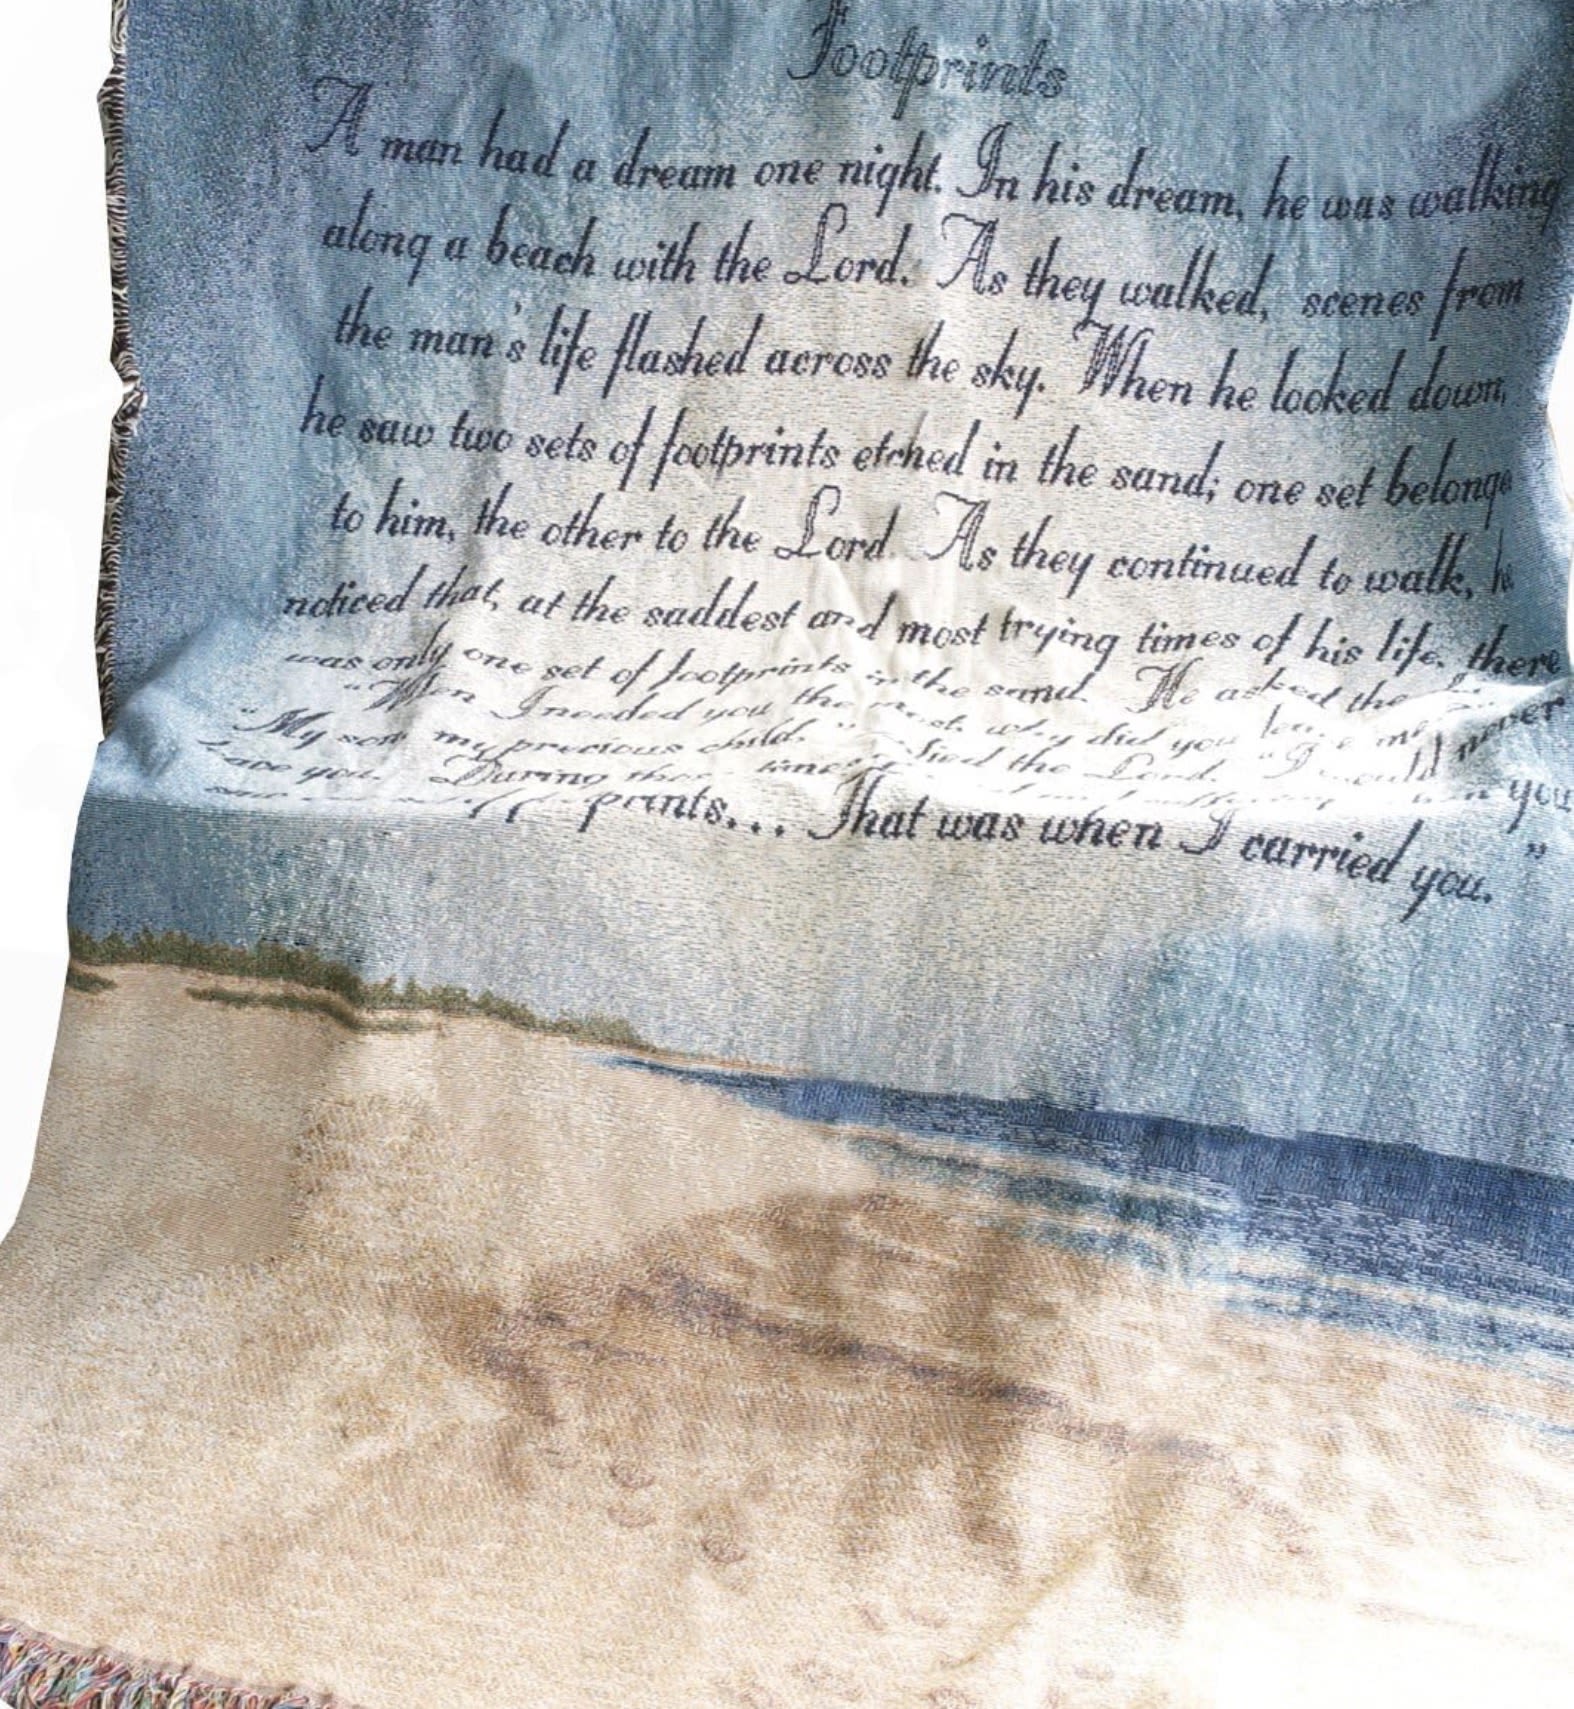 Footprints
A man had a dream one night. In his dream, he was walking
along a beach with the Lord. As they walked, scenes from
the man's life flashed across the sky. When he looked down,
he saw two sets of footprints etched in the sand; one set belonge
to him, the other to the Lord. As they continued to walk, he
noticed that, at the saddest and most trying times of his life, there
was only one set of footprints in the sand. He asked the
"When I needed you the most, why did you leave me
"My son, my precious child," the Lord. "I would never
leave you. During
prints... That was when I carried you."